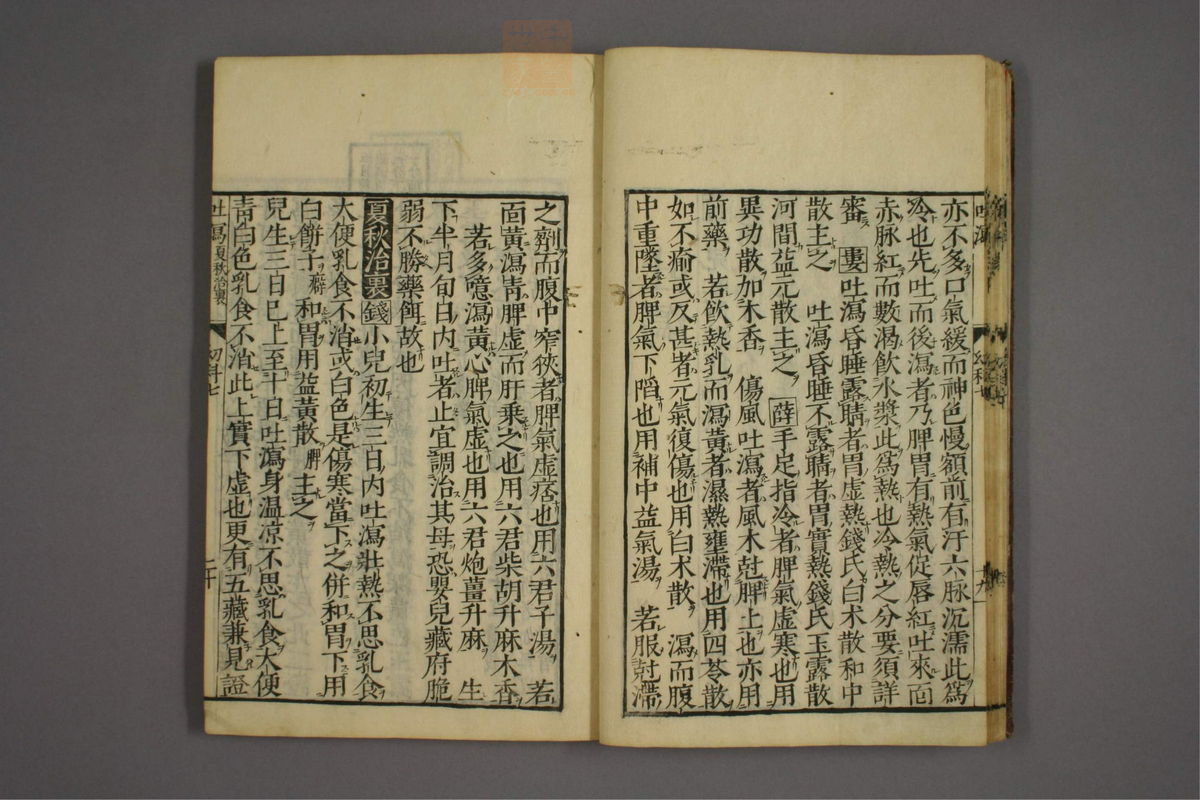 亦不多口氣緩而神色慢額前有汗六脉沉濡此爲
冷也先吐而後瀉者乃脾胃有熱氣促唇紅吐來面
赤脉紅而數渴飮水漿此爲熱也冷熱之分要須詳
審 婁吐瀉昏睡露睛者胃虛熱錢氏白术散和中
散主之 吐瀉昏睡不露睛者胃實熱錢氏玉露散
河間益元散主之 薛手足指冷者脾氣虛寒也用
異功散加木香 傷風吐瀉者風木尅脾土也亦用
前藥 若飲熱乳而瀉黃者濕熱壅滯也用四苓散
如不瘉或反甚者元氣復傷也用白术散 瀉而腹
中重墜者脾氣下陷也用補中益氣湯 若服尅滯
之劑而腹中窄狹者脾氣虛痞也用六君子湯 若
面黃瀉靑脾虛而肝乗之也用六君柴胡升麻木香
若多噫瀉黃心脾氣虛也用六君炮薑升麻 生
下半月旬日内吐者止宜調治其母恐嬰兒藏府脆
弱不勝藥餌故也
夏秋治裏 錢小兒初生三日内吐瀉壯熱不思乳食
大便乳食不消或白色是傷寒當下之併和胃下用
白餅子癖和胃用益黃散脾主之
兒生三日已上至十日吐瀉身温凉不思乳食大便
青白色乳食不消此上實下虛也更有五藏兼見證
吐瀉夏秋治裏 幼科七 二十